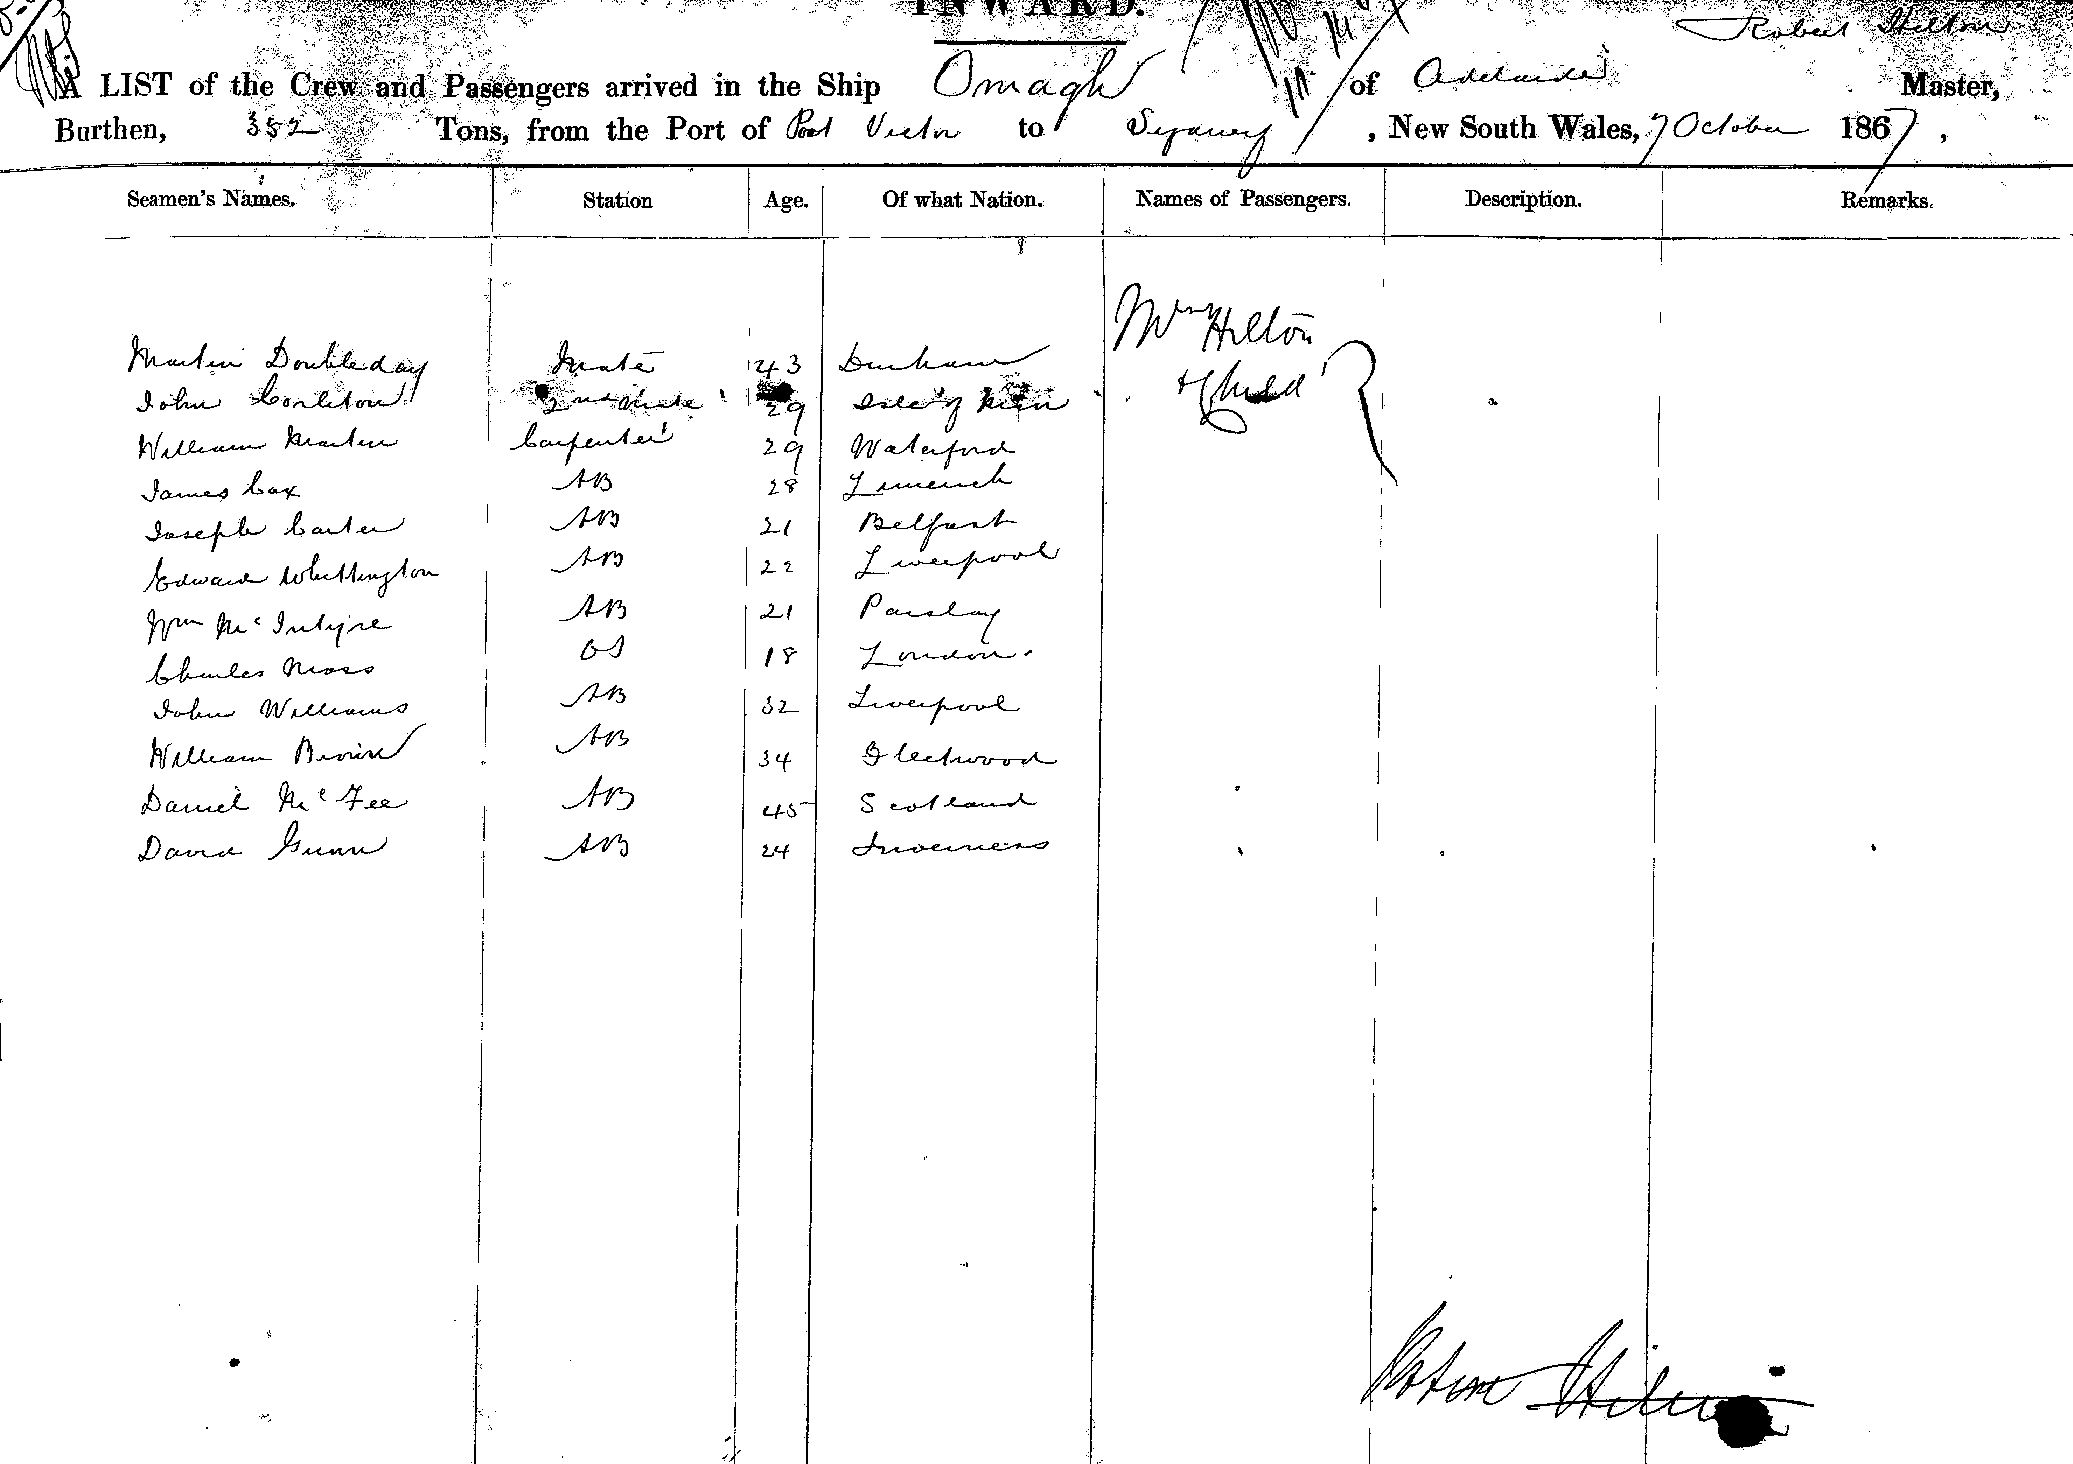 INWARD.
Robert Hilton
A LIST of the Crew and Passengers arrived in the Ship Omagh of Adelaide Master,
Burthen, 352 Tons, from the Port of Port Victor to Sydney, New South Wales, 7 October 1867,
Seamen's Names. Station Age. Of what Nation. Names of Passengers. Description. Remarks.
Mrs Hilton
Martin Doubleday Mate 43 Durham
& Child
John Corleton 2nd Mate 29 Isle of Man
William Martin Carpenter 29 Waterford
James Cox AB 28 Limerick
Joseph Carter AB 21 Belfast
Edward Whittington AB 22 Liverpool
Wm McIntyre AB 21 Paislay
Charles Moss OS 18 London.
John Williams AB 32 Liverpool
William Brown AB 34 Fleetwood
Daniel McFee AB 45 Scotland
David Gunn AB 24 Inverness
Robert Hilton